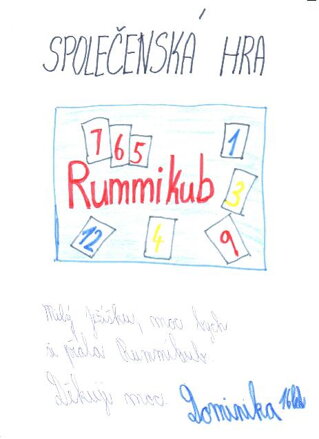 SPOLEČENSKÁ HRA
7 6 5 1
Rummikub
3
12 4 9
Milý Ježíšku, moc bych
si přála Rummikub.
Děkuji moc Dominika 16 let